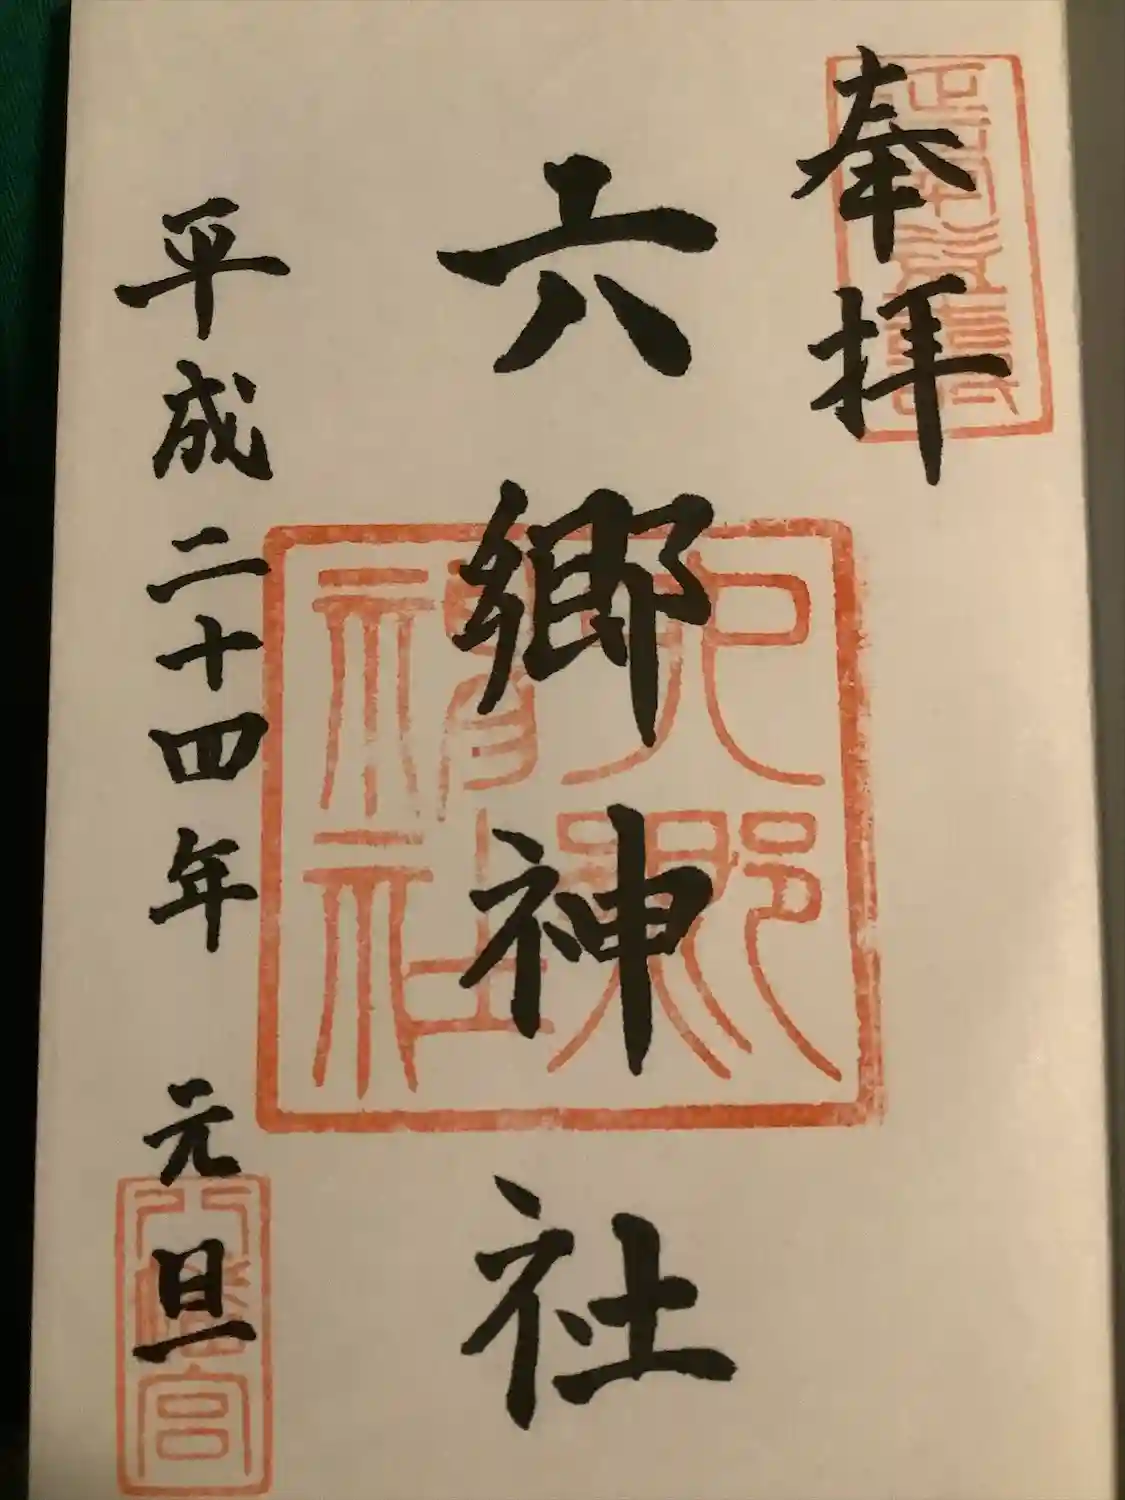 奉拝
六郷神社
六郷神社
平成二十四年 元旦
八幡宮